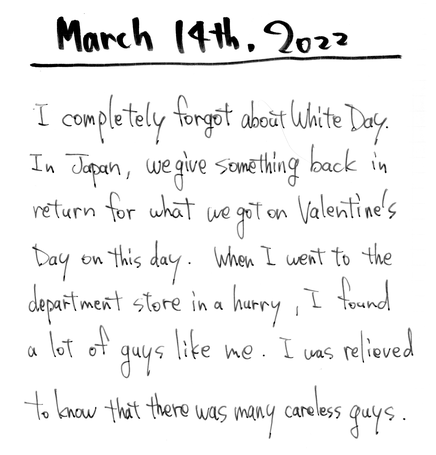 March 14th. 2022
I completely forgot about White Day.
In Japan, we give something back in
return for what we got on Valentine's
Day on this day. When I went to the
department store in a hurry, I found
a lot of guys like me. I was relieved
to know that there was many careless guys.